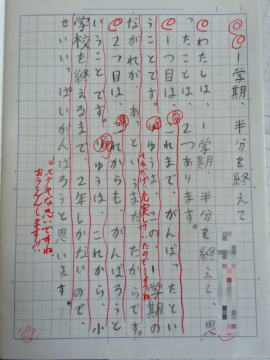 一学期、半分を終えて
わたしは、一学期半分を終えて、思
ったことは、2つあります。
1つ目は、これまで、がんばったとい
うことです。りゆうは、この一学期の
ながれが、あっというまだったからです。
それだけ充実していたのでしょうね
2つ目は、これからも、がんばろうと
いうことです。りゆうは、これから、小
学校を終えるまで、2年しかないので、
せいいっぱいがんばろうと思います。
ステキな思いですね
おうえんします!!